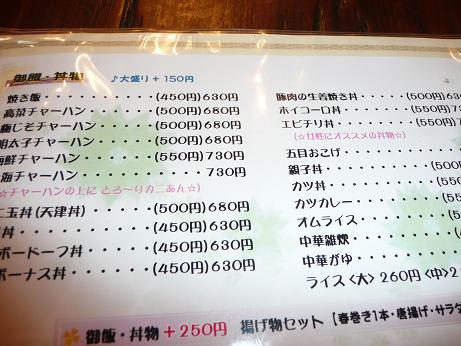 御飯・丼物 ♪大盛り+150円
焼き飯・・・・・・・・・(450円)630円
高菜チャーハン・・・・・(500円)680円
梅じそチャーハン・・・・(500円)680円
明太子チャーハン・・・・(500円)680円
海鮮チャーハン・・・・・(550円)730円
海チャーハン・・・・・・・・・・730円
☆チャーハンの上に とろ〜りカニあん☆
玉丼(天津丼)・・・・・(500円)680円
丼・・・・・・・・・・・(450円)630円
ボードーフ丼・・・・・・(450円)630円
ボーナス丼・・・・・・・(450円)630円
豚肉の生姜焼き丼・・・・(500円)630
ホイコーロ丼・・・・・・(500円)
エビチリ丼・・・・・・・(550円)
☆女性にオススメの丼物☆
五目おこげ・・・・・・・
親子丼・・・・・・・・・
カツ丼・・・・・・・・・
カツカレー・・・・・・・
オムライス・・・・・・・
中華雑炊・・・・・・・・
中華がゆ・・・・・・・・
ライス<大>260円<中>2
御飯・丼物+250円 揚げ物セット【春巻き1本・唐揚げ・サラダ